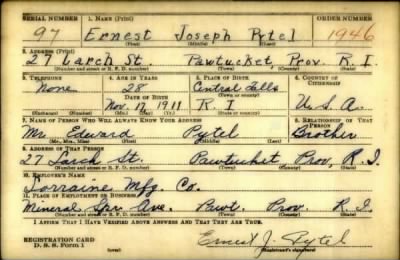 SERIAL NUMBER 1. NAME (Print) ORDER NUMBER
97 Ernest Joseph Pytel 1946
(First) (Middle) (Last)
2. ADDRESS (Print)
27 Larch St. Pawtucket, Prov. R. I.
(Number and street or R. F. D. number) (Town) (County) (State)
3. TELEPHONE 4. AGE IN YEARS 5. PLACE OF BIRTH 6. COUNTRY OF CITIZENSHIP
None 28 Central Falls
DATE OF BIRTH (Town or county)
Nov. 17 1911 R. I U. S. A.
(Exchange) (Number) (Mo.) (Day) (Yr.) (State or country)
7. NAME OF PERSON WHO WILL ALWAYS KNOW YOUR ADDRESS 8. RELATIONSHIP OF THAT PERSON
Mr. Edward Pytel Brother
(Mr., Mrs., Miss) (First) (Middle) (Last)
9. ADDRESS OF THAT PERSON
27 Larch St. Pawtucket Prov, R. I.
(Number and street or R. F. D. number) (Town) (County) (State)
10. EMPLOYER'S NAME
Lorraine Mfg. Co.
11. PLACE OF EMPLOYMENT OR BUSINESS
Mineral Spr. Ave. Pawt. Prov. R. I.
(Number and street or R. F. D. number) (Town) (County) (State)
I AFFIRM THAT I HAVE VERIFIED ABOVE ANSWERS AND THAT THEY ARE TRUE.
REGISTRATION CARD
D. S. S. Form 1 Ernest J. Pytel
(Registrant's signature)